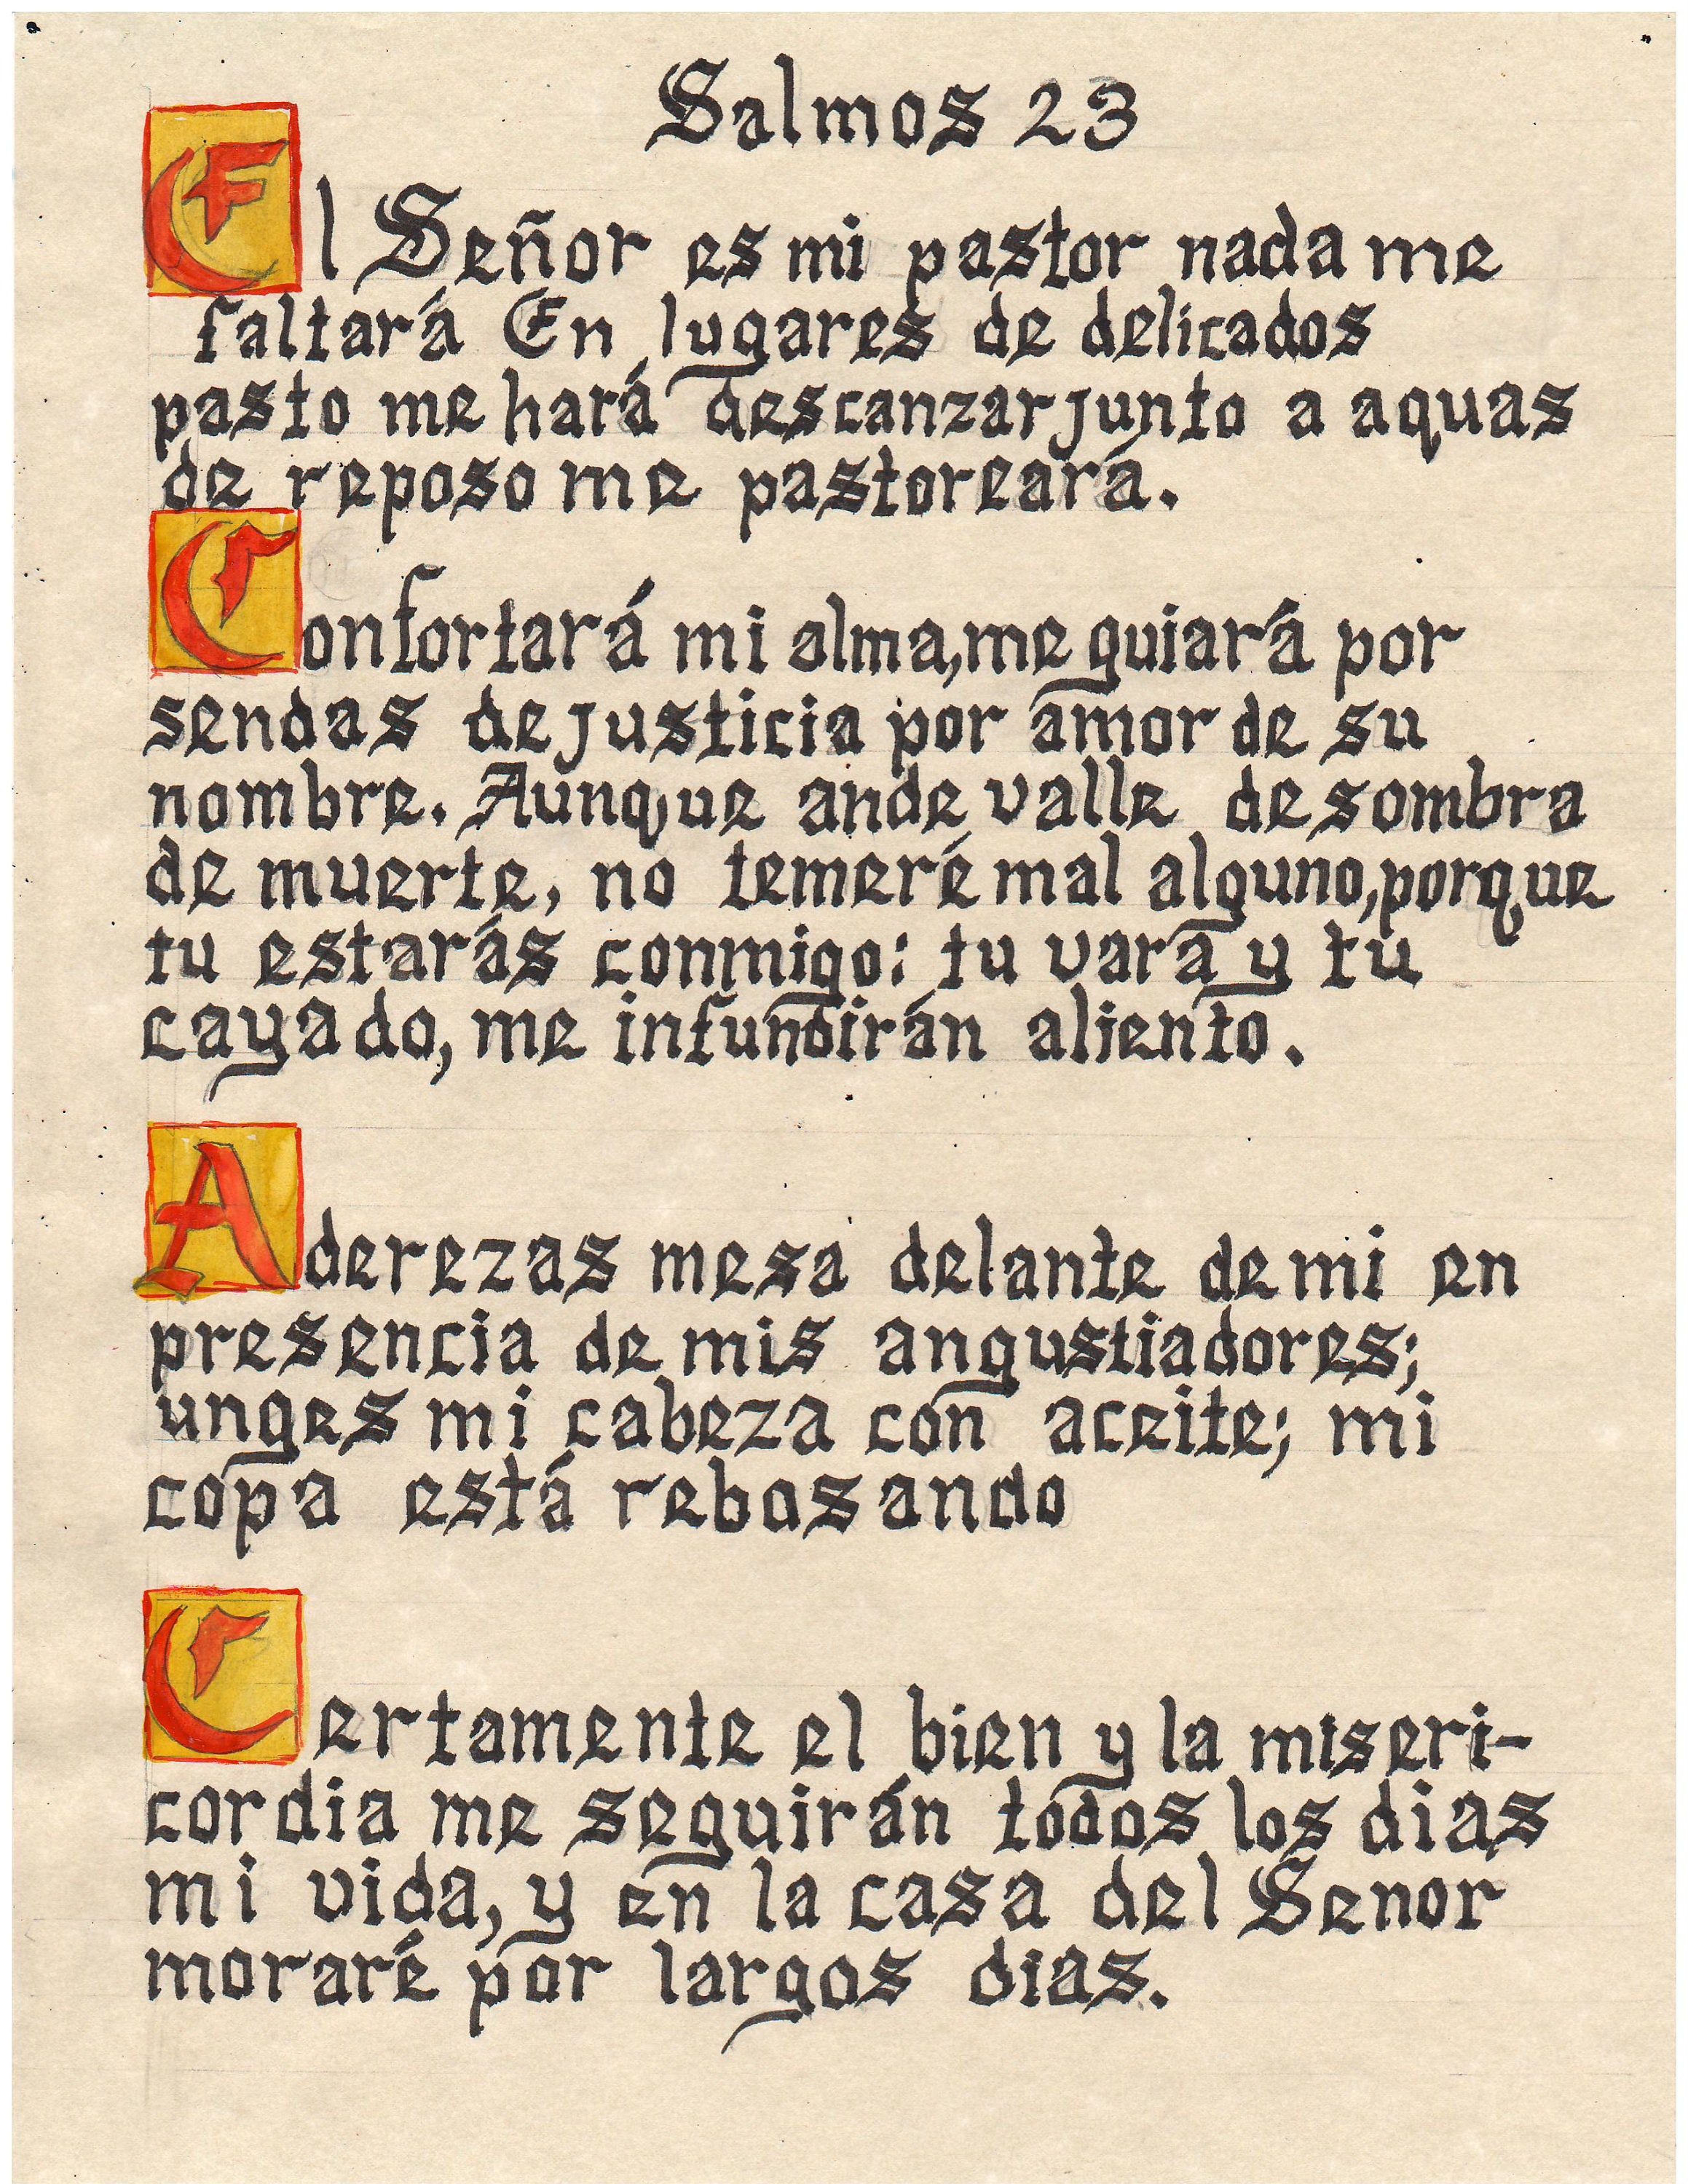 Salmos 23
El Señor es mi pastor nada me
faltará En lugares de delicados
pasto me hará descanzar junto a aguas
de reposo me pastoreará.
Confortará mi alma, me guiará por
sendas de justicia por amor de su
nombre. Aunque ande valle de sombra
de muerte, no temeré mal alguno, porque
tu estarás conmigo: tu vara y tu
cayado, me infundirán aliento.
Aderezas mesa delante de mi en
presencia de mis angustiadores;
unges mi cabeza con aceite; mi
copa está rebosando
Certamente el bien y la miseri-
cordia me seguirán todos los dias
mi vida, y en la casa del Senor
moraré por largos dias.